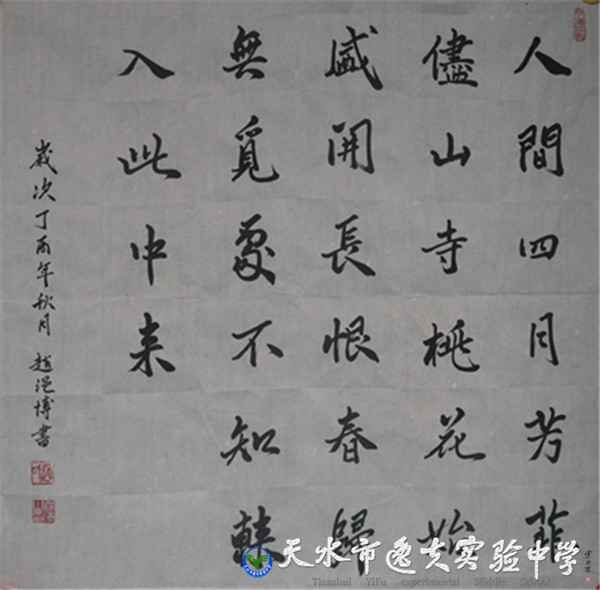 人間四月芳菲
儘山寺桃花始
盛開長恨春歸
無覓處不知轉
入此中来
歲次丁酉年秋月 趙博書
天水市逸夫实验中学
Tianshui YiFu experimental Middle School